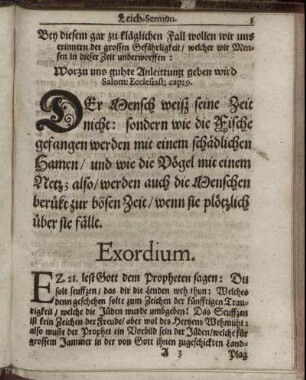 Leich-Sermon. 5
Bey diesem gar zu kläglichen Fall wollen wir uns
erinnern der grossen Gefährligkeit / welcher wir Men-
schen in dieser Zeit underworffen:
Worzu uns guhte Anleittung geben wird
Salom: Ecclesiast; cap: 9.
DEr Mensch weiß seine Zeit
nicht: sondern wie die Fische
gefangen werden mit einem schädlichen
Hamen / und wie die Vögel mit einem
Netz; also / werden auch die Menschen
berükt zur bösen Zeit / wenn sie plötzlich
über sie fällt.
Exordium.
EZ. 21. lest Gott dem Propheten sagen: Du
solt seuffzen / das dir die Lenden weh thun: Welches
denn geschehen solte zum Zeichen der künfftigen Trau-
rigkeit / welche die Jüden wurde umbgeben: Das Seuffzen
ist kein Zeichen der Freude / aber wol des Hertzens Wehmuht:
also muste der Prophet ein Vorbild sein der Jüden / welche für
grossem Jammer in der von Gott ihnen zugeschickten Land-
A 3 Plag